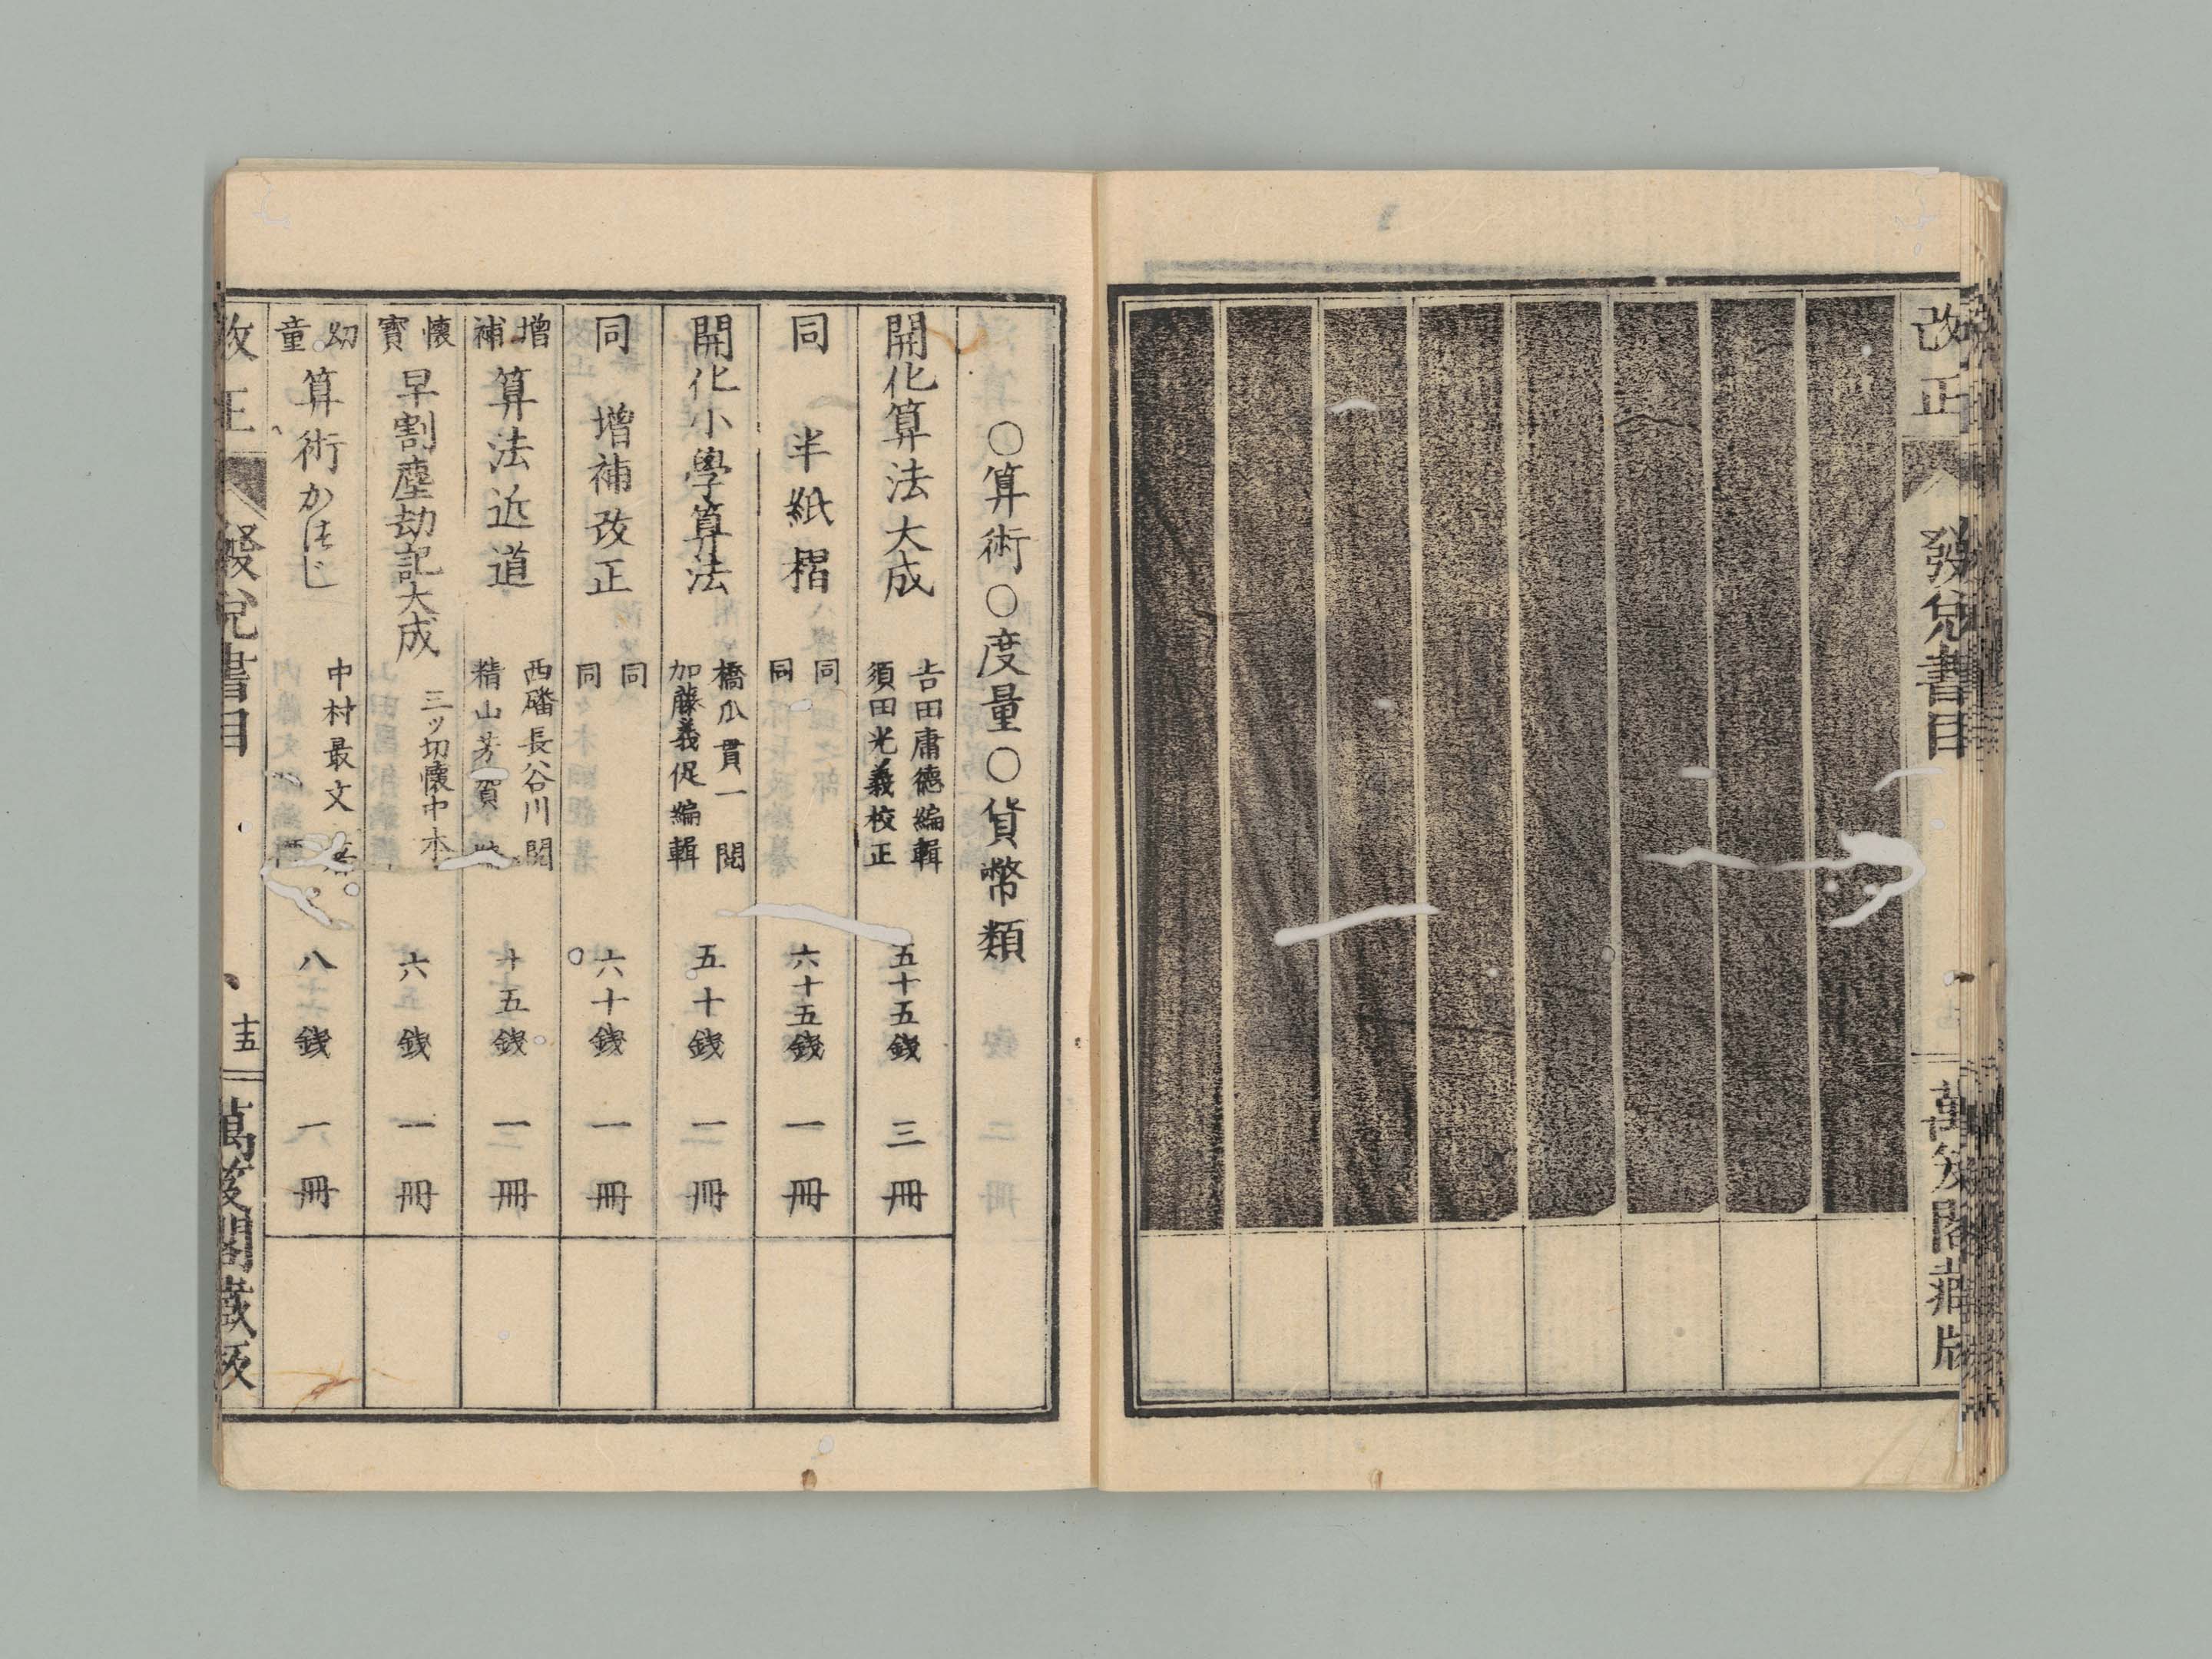 改正
發兌書目
萬笈閣藏版
○算術○度量○貨幣類
開化算法大成
吉田庸德編輯
須田光義校正
五十五錢
三冊
同半紙摺
同
同
六十五錢
一冊
開化小學算法
橋爪貫一閲
加藤義促編輯
五十錢
一冊
同增補改正
同
同
六十錢
一冊
增補
算法近道
西磻長谷川閲
精山芳賀
十五錢
一冊
懷寳
早割塵劫記大成
三ッ切懷中本
六錢
一冊
幼童
算術かはじ
中村最文
八錢
一冊
改正
發兌書目
十五
萬笈閣藏版